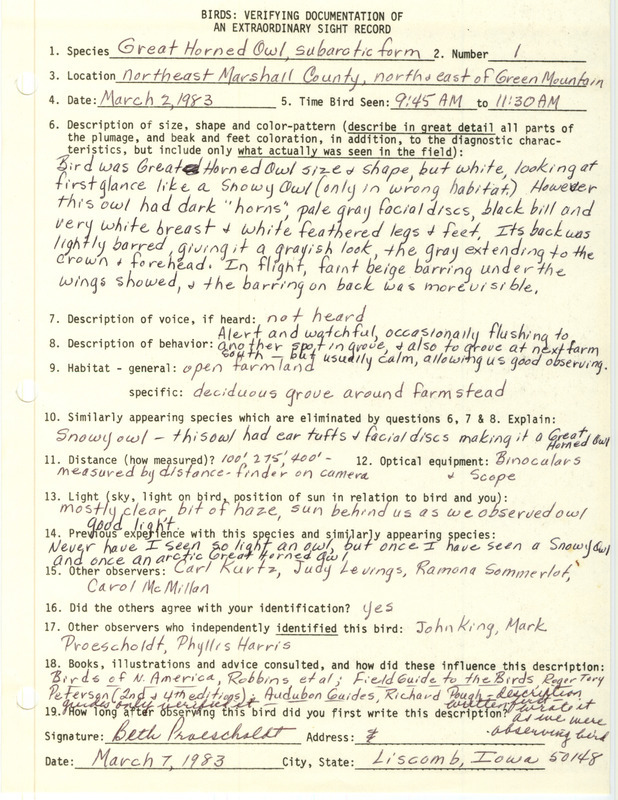 BIRDS: VERIFYING DOCUMENTATION OF
AN EXTRAORDINARY SIGHT RECORD
1. Species Great Horned Owl, subarctic form 2. Number 1
3. Location northeast Marshall County, north & east of Green Mountain
4. Date: March 2, 1983 5. Time Bird Seen: 9:45 AM to 11:30 AM
6. Description of size, shape and color-pattern (describe in great detail all parts of
the plumage, and beak and feet coloration, in addition, to the diagnostic charac-
teristics, but include only what actually was seen in the field):
Bird was Great Horned Owl size & shape, but white, looking at
first glance like a Snowy Owl (only in wrong habitat) However
this owl had dark "horns", pale gray facial discs, black bill and
very white breast & white feathered legs & feet. Its back was
lightly barred, giving it a grayish look, the gray extending to the
crown & forehead. In flight, faint beige barring under the
wings showed, & the barring on back was more visible.
7. Description of voice, if heard: not heard
Alert and watchful, occasionally flushing to
8. Description of behavior: another spot in grove, & also to grove at next farm
south — but usually calm, allowing us good observing.
9. Habitat - general: open farmland
specific: deciduous grove around farmstead
10. Similarly appearing species which are eliminated by questions 6, 7 & 8. Explain:
Snowy owl — this owl had ear tufts & facial discs making it a Great
Horned Owl
11. Distance (how measured)? 100', 275', 400' - 12. Optical equipment: Binoculars
measured by distance-finder on camera & Scope
13. Light (sky, light on bird, position of sun in relation to bird and you):
mostly clear, bit of haze, sun behind us as we observed owl
good light
14. Previous experience with this species and similarly appearing species:
Never have I seen so light an owl, but once I have seen a Snowy Owl
and once an arctic Great Horned Owl
15. Other observers: Carl Kurtz, Judy Levings, Ramona Sommerlot,
Carol McMillan
16. Did the others agree with your identification? yes
17. Other observers who independently identified this bird: John King, Mark
Proescholdt, Phyllis Harris
18. Books, illustrations and advice consulted, and how did these influence this description:
Birds of N. America, Robbins, et al; Field Guide to the Birds Roger Tory
Peterson (2nd & 4th editions); Audubon Guides, Richard Pough - description
guides only verified it written
19. How long after observing this bird did you first write this description? wrote it
as we were
observing bird
Signature: Beth Proescholdt Address:
Date: March 7, 1983 City, State: Liscomb, Iowa 50148